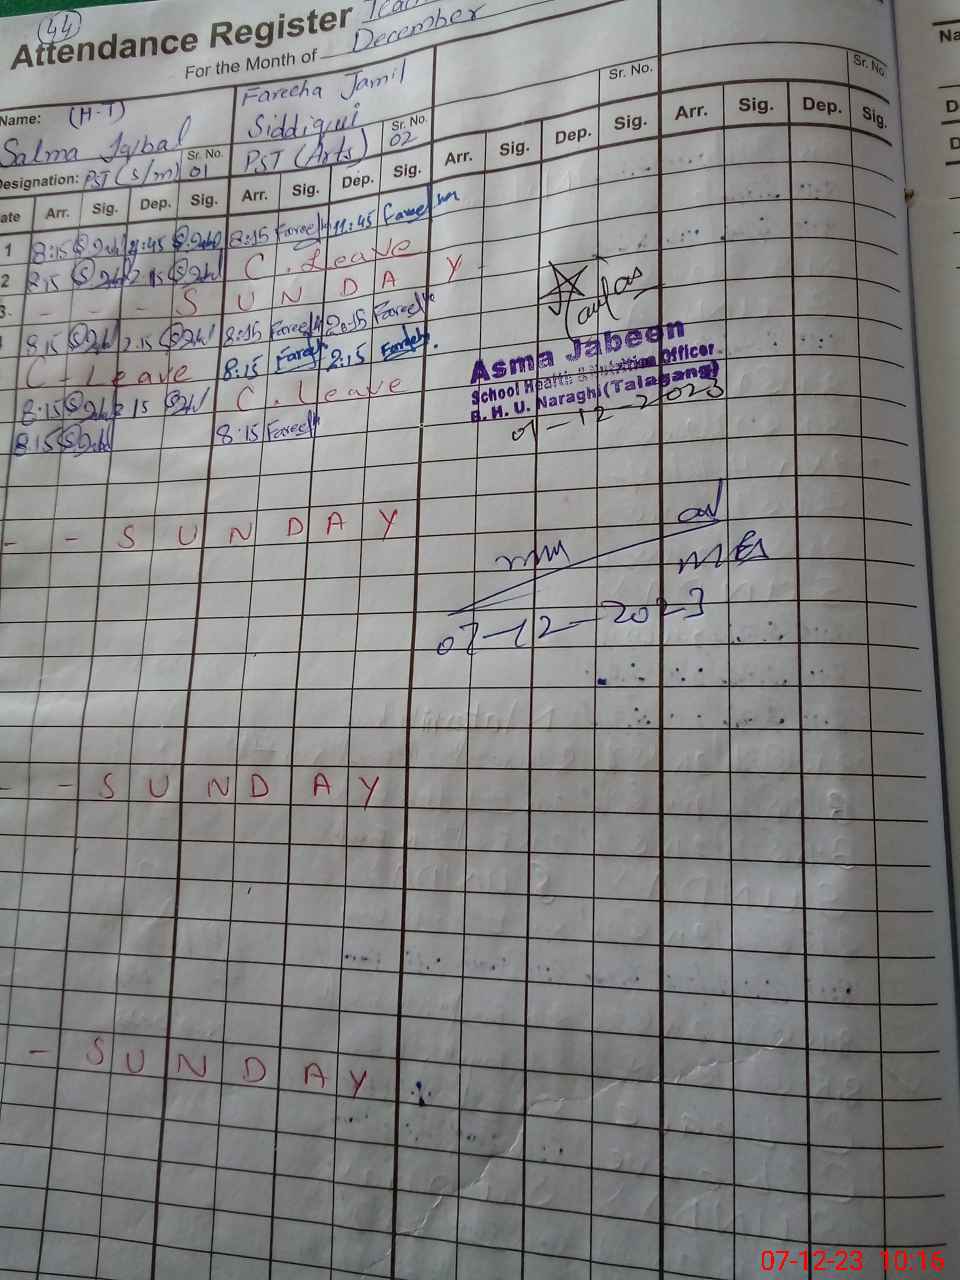 44
Attendance Register
For the Month of December
Name: (H-T) Salma Iqbal
Fareeha Jamil Siddiqui
Sr. No. Sr. No.
Designation: PST (S/m) Sr. No. 01 PST (Arts) Sr. No. 02
Arr. Sig. Dep. Sig. Arr. Sig. Dep. Sig. Arr. Sig. Dep. Sig. Arr. Sig. Dep. Sig.
1 8:15 11:45 8:15 Fareeh 11:45
2 8:15 2:15 C. Leave
3. - - - S U N D A Y
8:15 2:15 8:15 Fareeh 2:15
C - Leave 8:15 Fareeh 2:15 Fareeh
8:15 2:15 C. Leave
8:15 8:15 Fareeh
Asma Jabeen
School Health & Nutrition Officer
B. H. U. Naraghi (Talagang)
07-12-2023
- - S U N D A Y
07-12-2023
- - S U N D A Y
- S U N D A Y
07-12-23 10:16